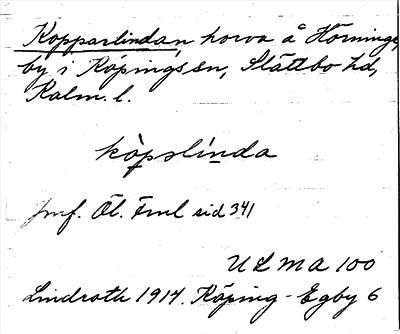 Kopparlindan, horva å Hörninge,
by i Köpings sn, Slättbo hd,
Kalm. l.
kòpslìnda
jmf. Öl. Fml sid 341
ULMA 100
Lindroth 1914. Köping - Egby 6